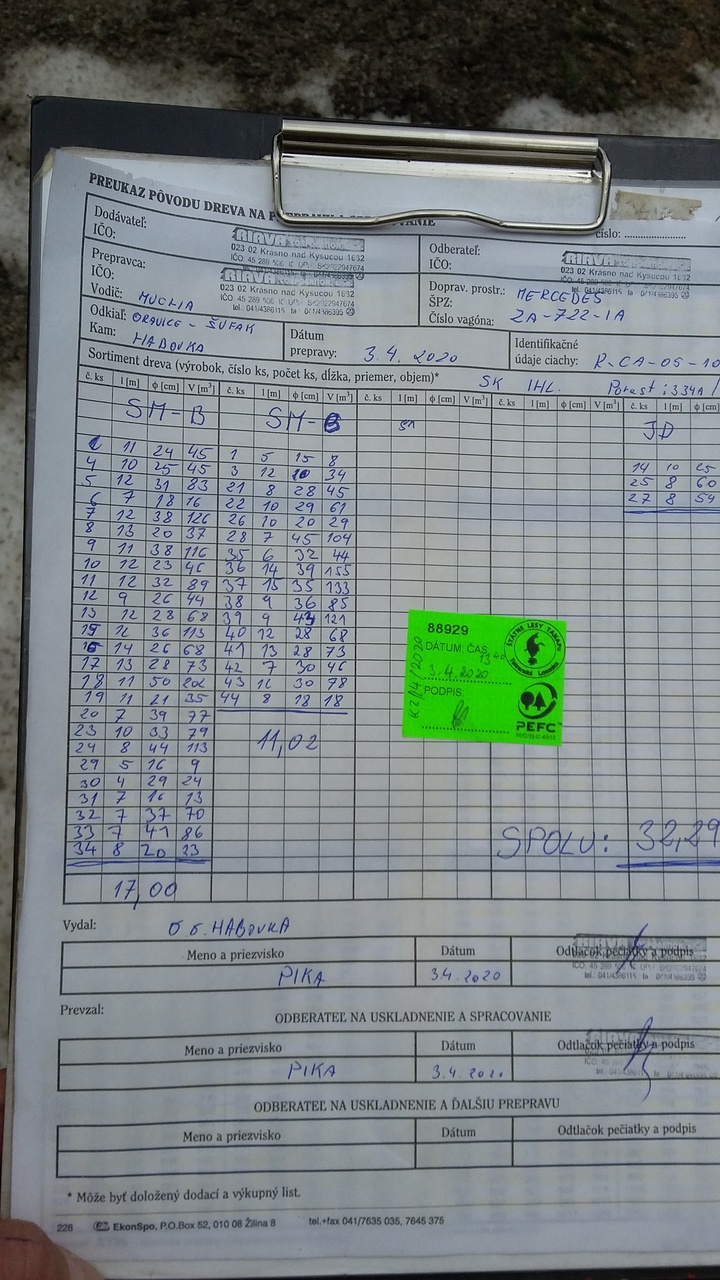 PREUKAZ PÔVODU DREVA NA
číslo: ....................
Dodávateľ:
IČO:
RIAVA
023 02 Krásno nad Kysucou 1632
Odberateľ:
IČO:
RIAVA
023 02 Krásno nad Kysucou 1632
Prepravca:
IČO:
Vodič: MUCHA
RIAVA
023 02 Krásno nad Kysucou 1632
tel.: 041/4386115
Doprav. prostr.: MERCEDES
ŠPZ:
Číslo vagóna: ZA-722-IA
Odkiaľ: ORAVICE - ŠUFAK
Kam: HABOVKA
Dátum
prepravy: 3.4. 2020
Identifikačné
údaje ciachy: R-CA-05-10
Sortiment dreva (výrobok, číslo ks, počet ks, dĺžka, priemer, objem)*
SK IHL. Porast: 334A/
č. ks l [m] φ [cm] V [m³] č. ks l [m] φ [cm] V [m³] č. ks l [m] φ [cm] V [m³] č. ks l [m] φ [cm] V [m³] č. ks l [m] φ [cm]
SM-B SM-B JD
11 24 45 1 5 15 8
4 10 25 45 3 12 20 34 14 10 25
5 12 31 83 21 8 28 45 25 8 60
6 7 18 16 22 10 29 61 27 8 54
7 12 38 126 26 10 20 29
8 13 20 37 28 7 45 104
9 11 38 116 35 6 32 44
10 12 23 46 36 14 39 155
11 12 32 89 37 15 35 133
12 9 26 44 38 9 36 85
13 12 28 68 39 9 43 121
15 12 36 113 40 12 28 68
16 14 26 68 41 13 28 73
17 13 28 73 42 7 30 46
18 11 50 202 43 12 30 78
19 11 21 35 44 8 18 18
20 7 39 77
23 10 33 79 11,02
24 8 44 113
29 5 16 9
30 4 29 24
31 7 16 13
32 7 37 70
33 7 41 86
34 8 20 23
17,00
SPOLU: 32,29
88929
DÁTUM, ČAS
13 40
3.4.2020
PODPIS
K2/4/2020
ŠTÁTNE LESY TANAPU
Tatranská Lomnica
PEFC
Vydal: O.S. HABOVKA
Meno a priezvisko Dátum Odtlačok pečiatky a podpis
PIKA 3.4.2020
Prevzal: ODBERATEĽ NA USKLADNENIE A SPRACOVANIE
Meno a priezvisko Dátum Odtlačok pečiatky a podpis
PIKA 3.4.2020
ODBERATEĽ NA USKLADNENIE A ĎALŠIU PREPRAVU
Meno a priezvisko Dátum Odtlačok pečiatky a podpis
* Môže byť doložený dodací a výkupný list.
228 EkonSpo, P.O.Box 52, 010 08 Žilina 8 tel.+fax 041/7635 035, 7645 375